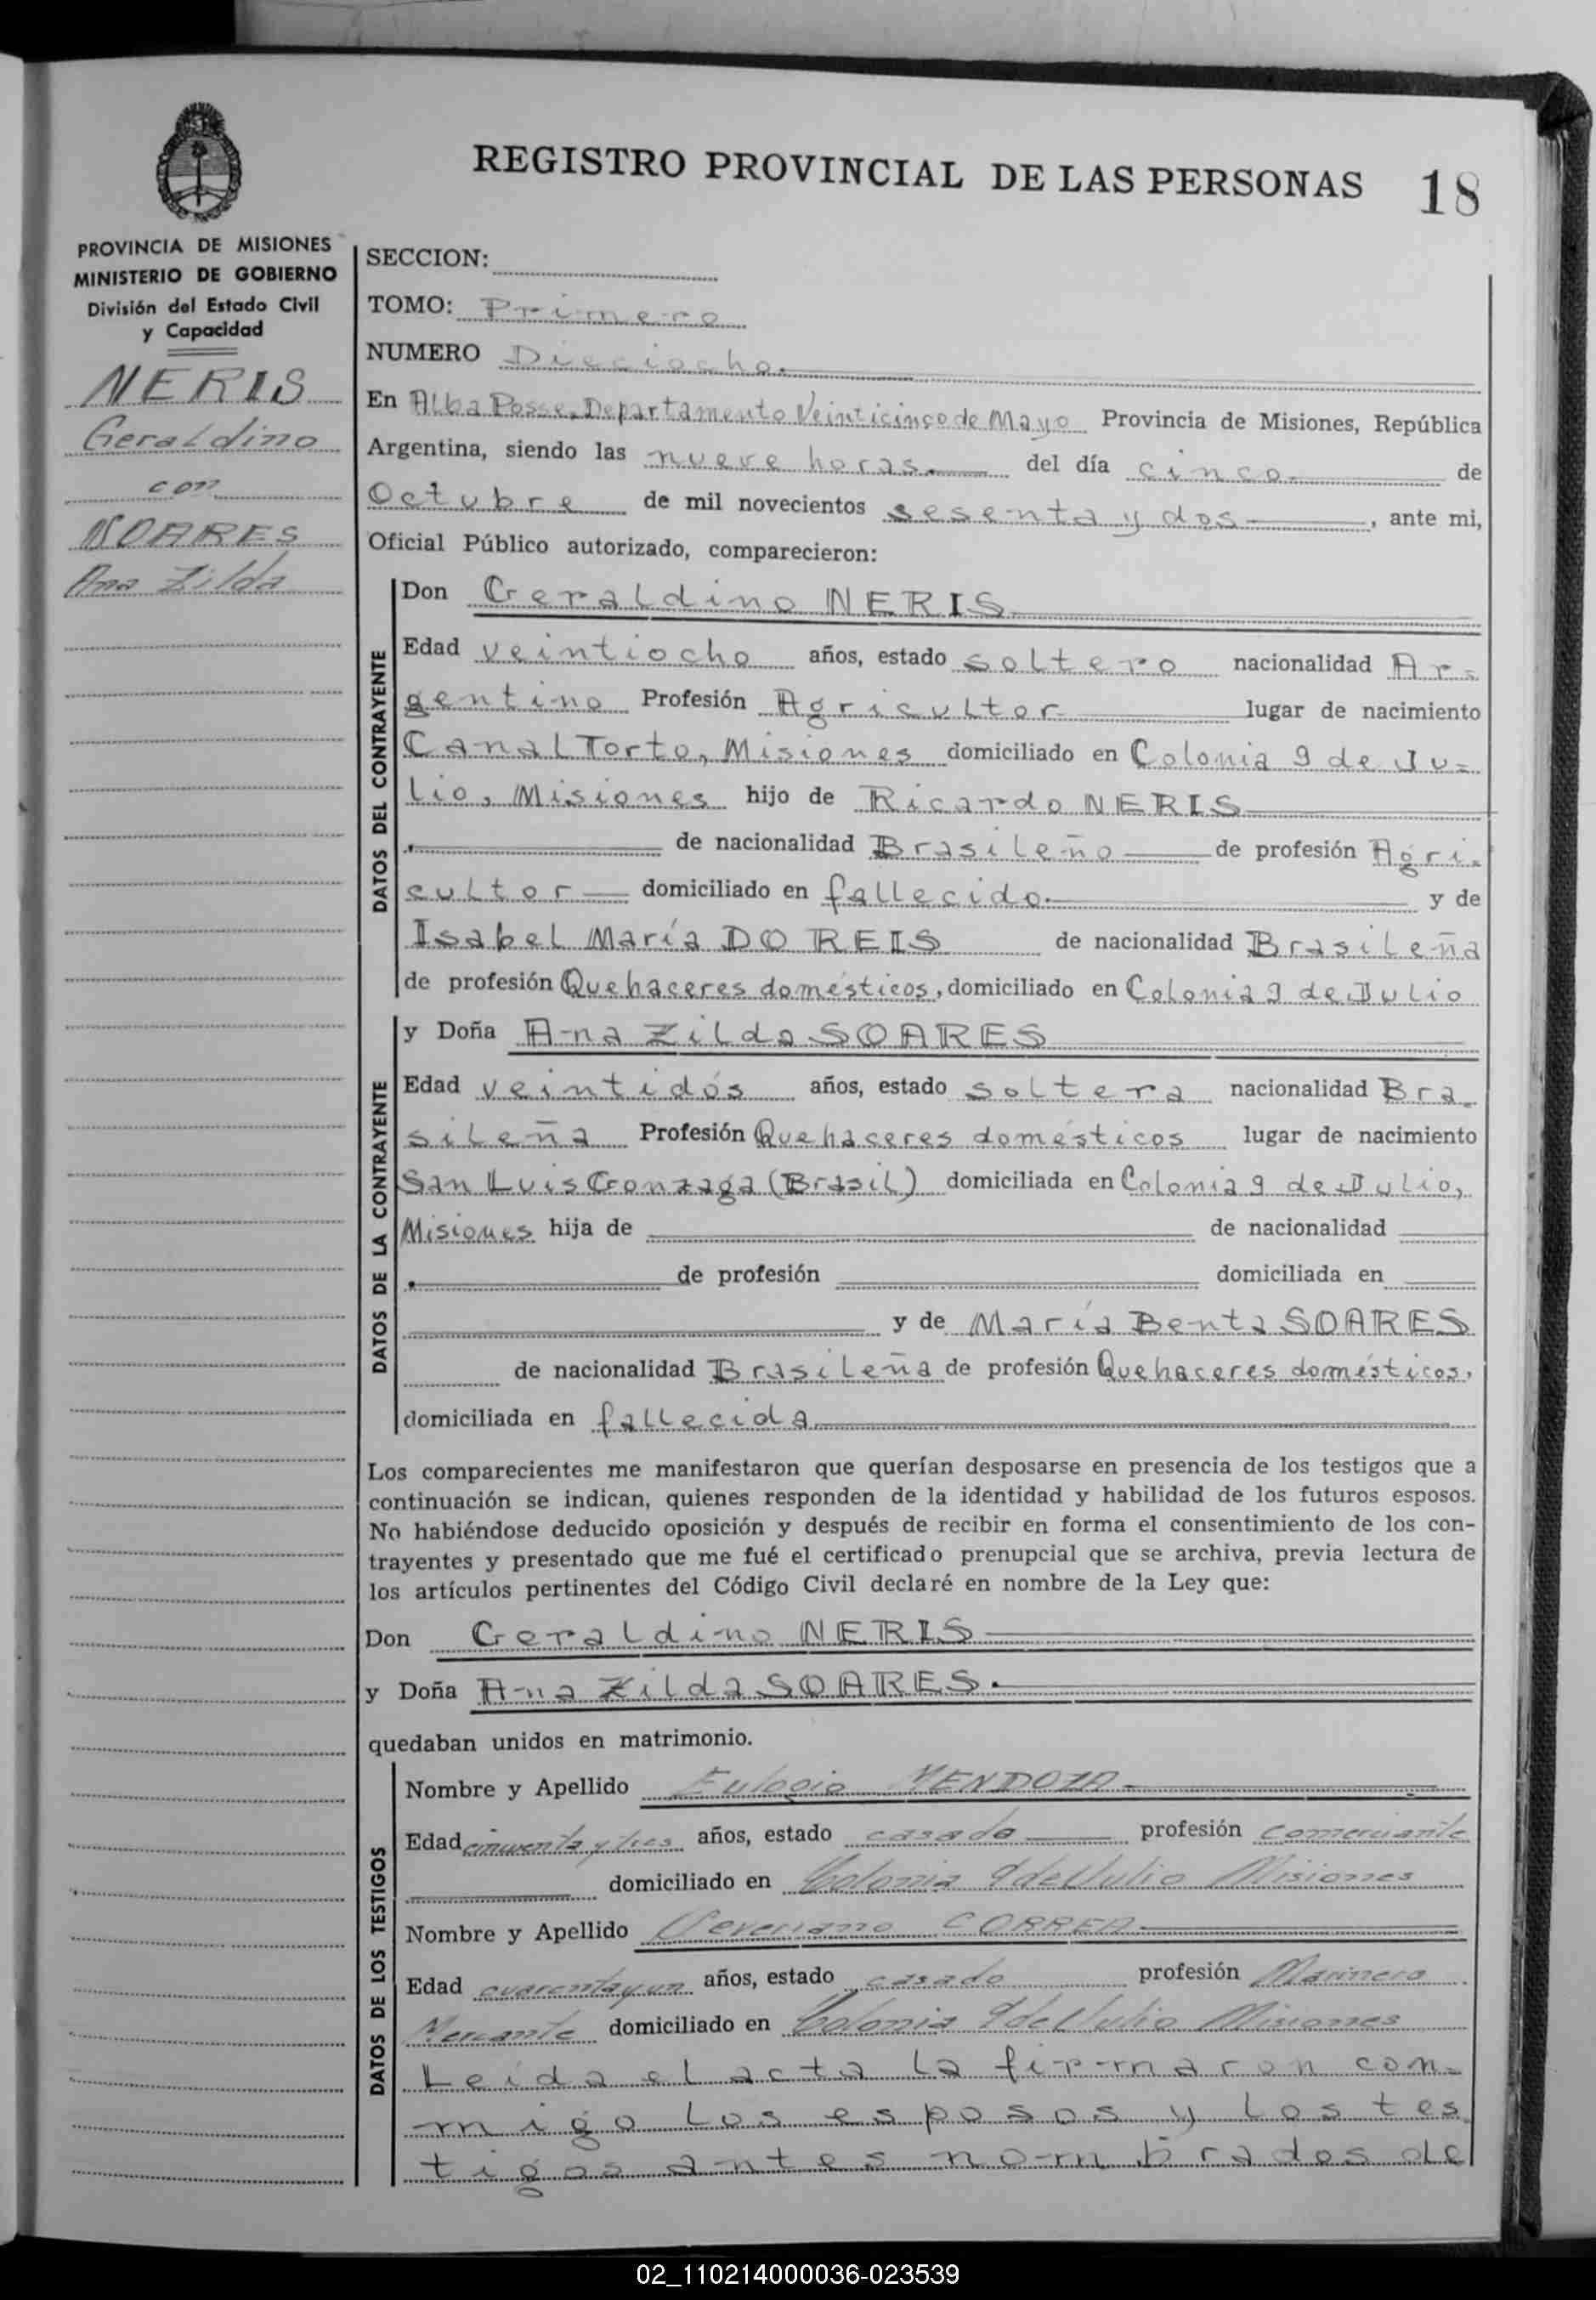 REGISTRO PROVINCIAL DE LAS PERSONAS 18
PROVINCIA DE MISIONES
MINISTERIO DE GOBIERNO
División del Estado Civil
y Capacidad
NERIS
Geraldino
con
SOARES
Ana Zilda
SECCION:
TOMO: Primero
NUMERO Dieciocho.
En Alba Posse, Departamento Veinticinco de Mayo Provincia de Misiones, República
Argentina, siendo las nueve horas. del día cinco de
Octubre de mil novecientos sesenta y dos , ante mi,
Oficial Público autorizado, comparecieron:
DATOS DEL CONTRAYENTE
Don Geraldino NERIS
Edad veintiocho años, estado soltero nacionalidad Ar-
gentino Profesión Agricultor lugar de nacimiento
Canal Torto, Misiones domiciliado en Colonia 9 de Ju-
lio, Misiones hijo de Ricardo NERIS
de nacionalidad Brasileño de profesión Agri-
cultor domiciliado en fallecido. y de
Isabel María DO REIS de nacionalidad Brasileña
de profesión Quehaceres domésticos, domiciliado en Colonia 9 de Julio
DATOS DE LA CONTRAYENTE
y Doña Ana Zilda SOARES
Edad veintidós años, estado soltera nacionalidad Bra-
sileña Profesión Quehaceres domésticos lugar de nacimiento
San Luis Gonzaga (Brasil) domiciliada en Colonia 9 de Julio,
Misiones hija de de nacionalidad
de profesión domiciliada en
y de María Benta SOARES
de nacionalidad Brasileña de profesión Quehaceres domésticos,
domiciliada en fallecida
Los comparecientes me manifestaron que querían desposarse en presencia de los testigos que a
continuación se indican, quienes responden de la identidad y habilidad de los futuros esposos.
No habiéndose deducido oposición y después de recibir en forma el consentimiento de los con-
trayentes y presentado que me fué el certificado prenupcial que se archiva, previa lectura de
los artículos pertinentes del Código Civil declaré en nombre de la Ley que:
Don Geraldino NERIS
y Doña Ana Zilda SOARES.
quedaban unidos en matrimonio.
DATOS DE LOS TESTIGOS
Nombre y Apellido Eulogio MENDOZA
Edad cincuenta y tres años, estado casado profesión Comerciante
domiciliado en Colonia 9 de Julio Misiones
Nombre y Apellido Severiano CORREA
Edad cuarenta y un años, estado casado profesión Marinero
Mercante domiciliado en Colonia 9 de Julio Misiones
Leída el acta la firmaron con-
migo los esposos y los tes
tigos antes nombrados de
02_110214000036-023539